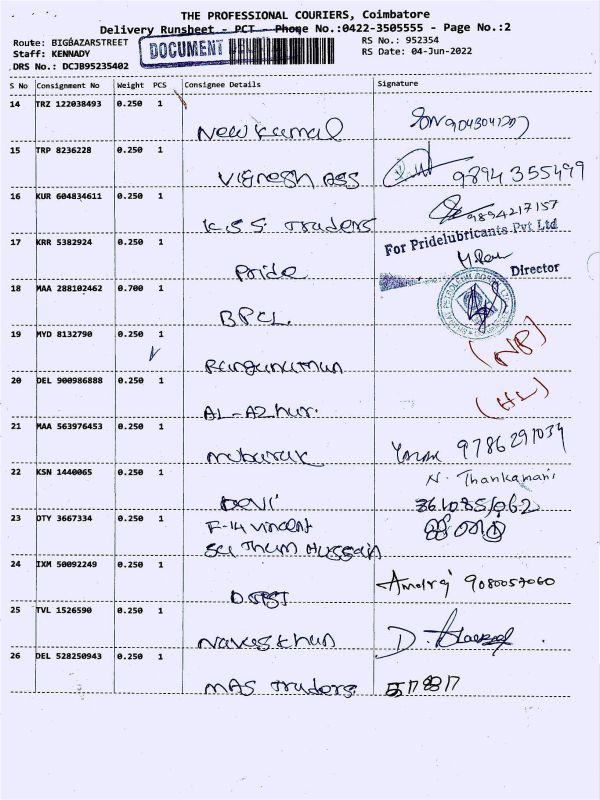 THE PROFESSIONAL COURIERS, Coimbatore
Delivery Runsheet - PCT - Phone No.:0422-3505555 - Page No.:2
Route: BIGBAZARSTREET
Staff: KENNADY
DRS No.: DCJB95235402
DOCUMENT
RS No.: 952354
RS Date: 04-Jun-2022
S No Consignment No Weight PCS Consignee Details Signature
14 TRZ 122038493 0.250 1
New Kamal
15 TRP 8236228 0.250 1
Vignesh Ass 9894355499
16 KUR 604834611 0.250 1
K.S.S. Traders 9894217157
17 KRR 5382924 0.250 1
Pride
For Pridelubricants Pvt Ltd
Director
18 MAA 288102462 0.700 1
BPCL.
19 MYD 8132790 0.250 1
(NB)
20 DEL 900986888 0.250 1
AL-Azhar. (HL)
21 MAA 563976453 0.250 1
Mubarak 9786291034
22 KSN 1440065 0.250 1
Devi
N. Thankamani
23 OTY 3667334 0.250 1
F-14 Vincent
Hussain
24 IXM 50092249 0.250 1
9080057060
25 TVL 1526590 0.250 1
26 DEL 528250943 0.250 1
MAS Traders